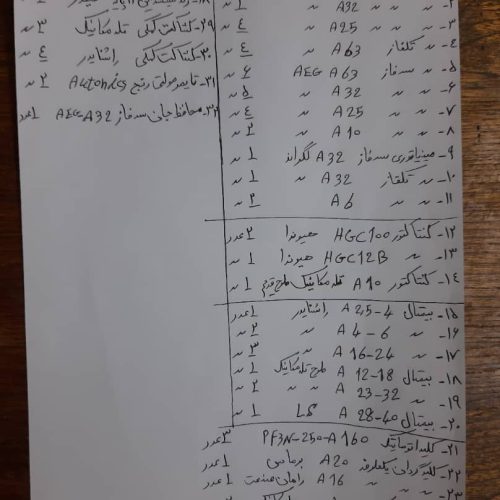 ۲- 〃 〃 A32 〃 ۱ 〃
۳- 〃 〃 A25 〃 ٤ 〃
٤- 〃 تکفاز A63 〃 ٤ 〃
۵- 〃 سه فاز AEG A63 ۶ 〃
۶- 〃 〃 A32 〃 ۵ 〃
۷- 〃 〃 A25 〃 ٤ 〃
۸- 〃 〃 A10 〃 ۲ 〃
۹- مینیاتوری سه فاز A32 لگراند ۱ 〃
۱۰- 〃 تکفاز A32 〃 ۱ 〃
۱۱- 〃 〃 A6 ۲ 〃
۱۲- کنتاکتور HGC100 هیوندا ۲ عدد
۱۳- 〃 〃 HGC12B هیوندا ۱ 〃
۱٤- کنتاکتور A10 تله مکانیک طرح قدیم ۱ 〃
۱۵- بیتال A 2,5-4 اشنایدر ۱ عدد
۱۶- 〃 〃 A 4-6 〃 ۲ 〃
۱۷- 〃 〃 A 16-24 〃 ۳ 〃
۱۸- بیتال A 12-18 طرح تله مکانیک ۱ 〃
۱۹- 〃 A 23-32 〃 〃 ۲ 〃
۲۰- بیتال A 28-40 LS ۱ 〃
۲۱- کلید اتوماتیک PF3N-250-A160 ۳ عدد
۲۲- کلید گردان یکطرفه A20 ۱ عدد
〃 〃 A16 صنعت ۱ 〃
۲۳-
۲۹- کنتاکت کمکی تله مکانیک ۳ 〃
۳۰- کنتاکت کمکی اشنایدر ٤ 〃
۳۱- تایمر مولتی رنج Autonics ۲ 〃
۳۲- محافظ جان سه فاز AEG-A32 ۱ عدد